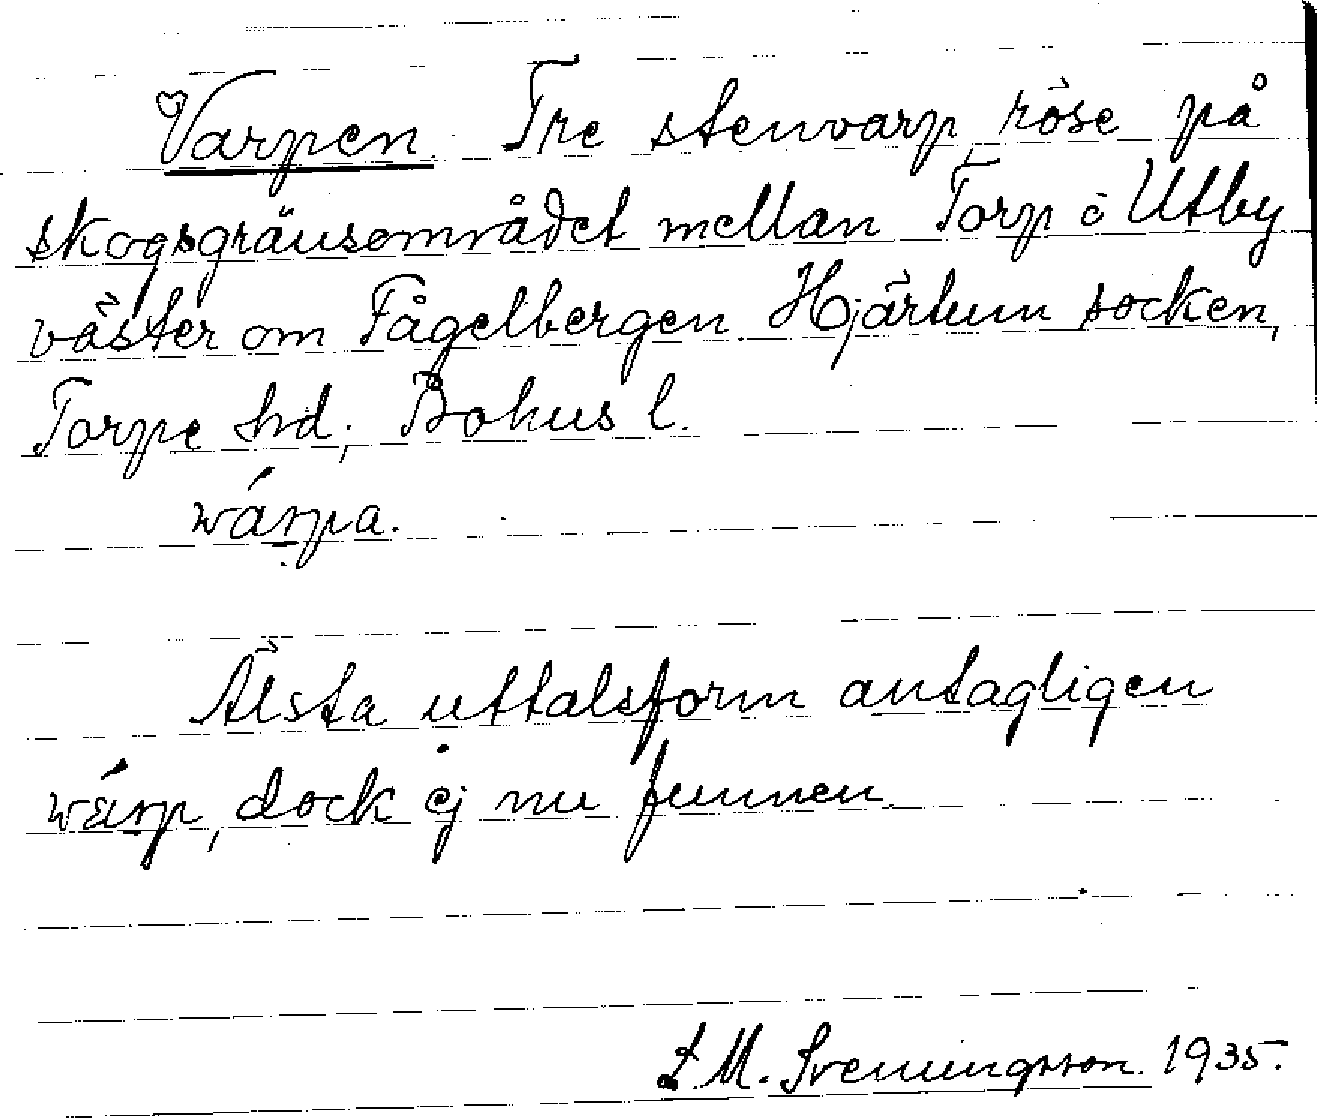 Varpen. Tre stenvarp, röse på
skogsgränsområdet mellan Torp o Utby
väster om Fågelbergen Hjärtum socken,
Torpe hd; Bohus l.
wárpa.
Älsta uttalsform antagligen
wárp, dock ej nu funnen.
L M. Svenningsson. 1935.